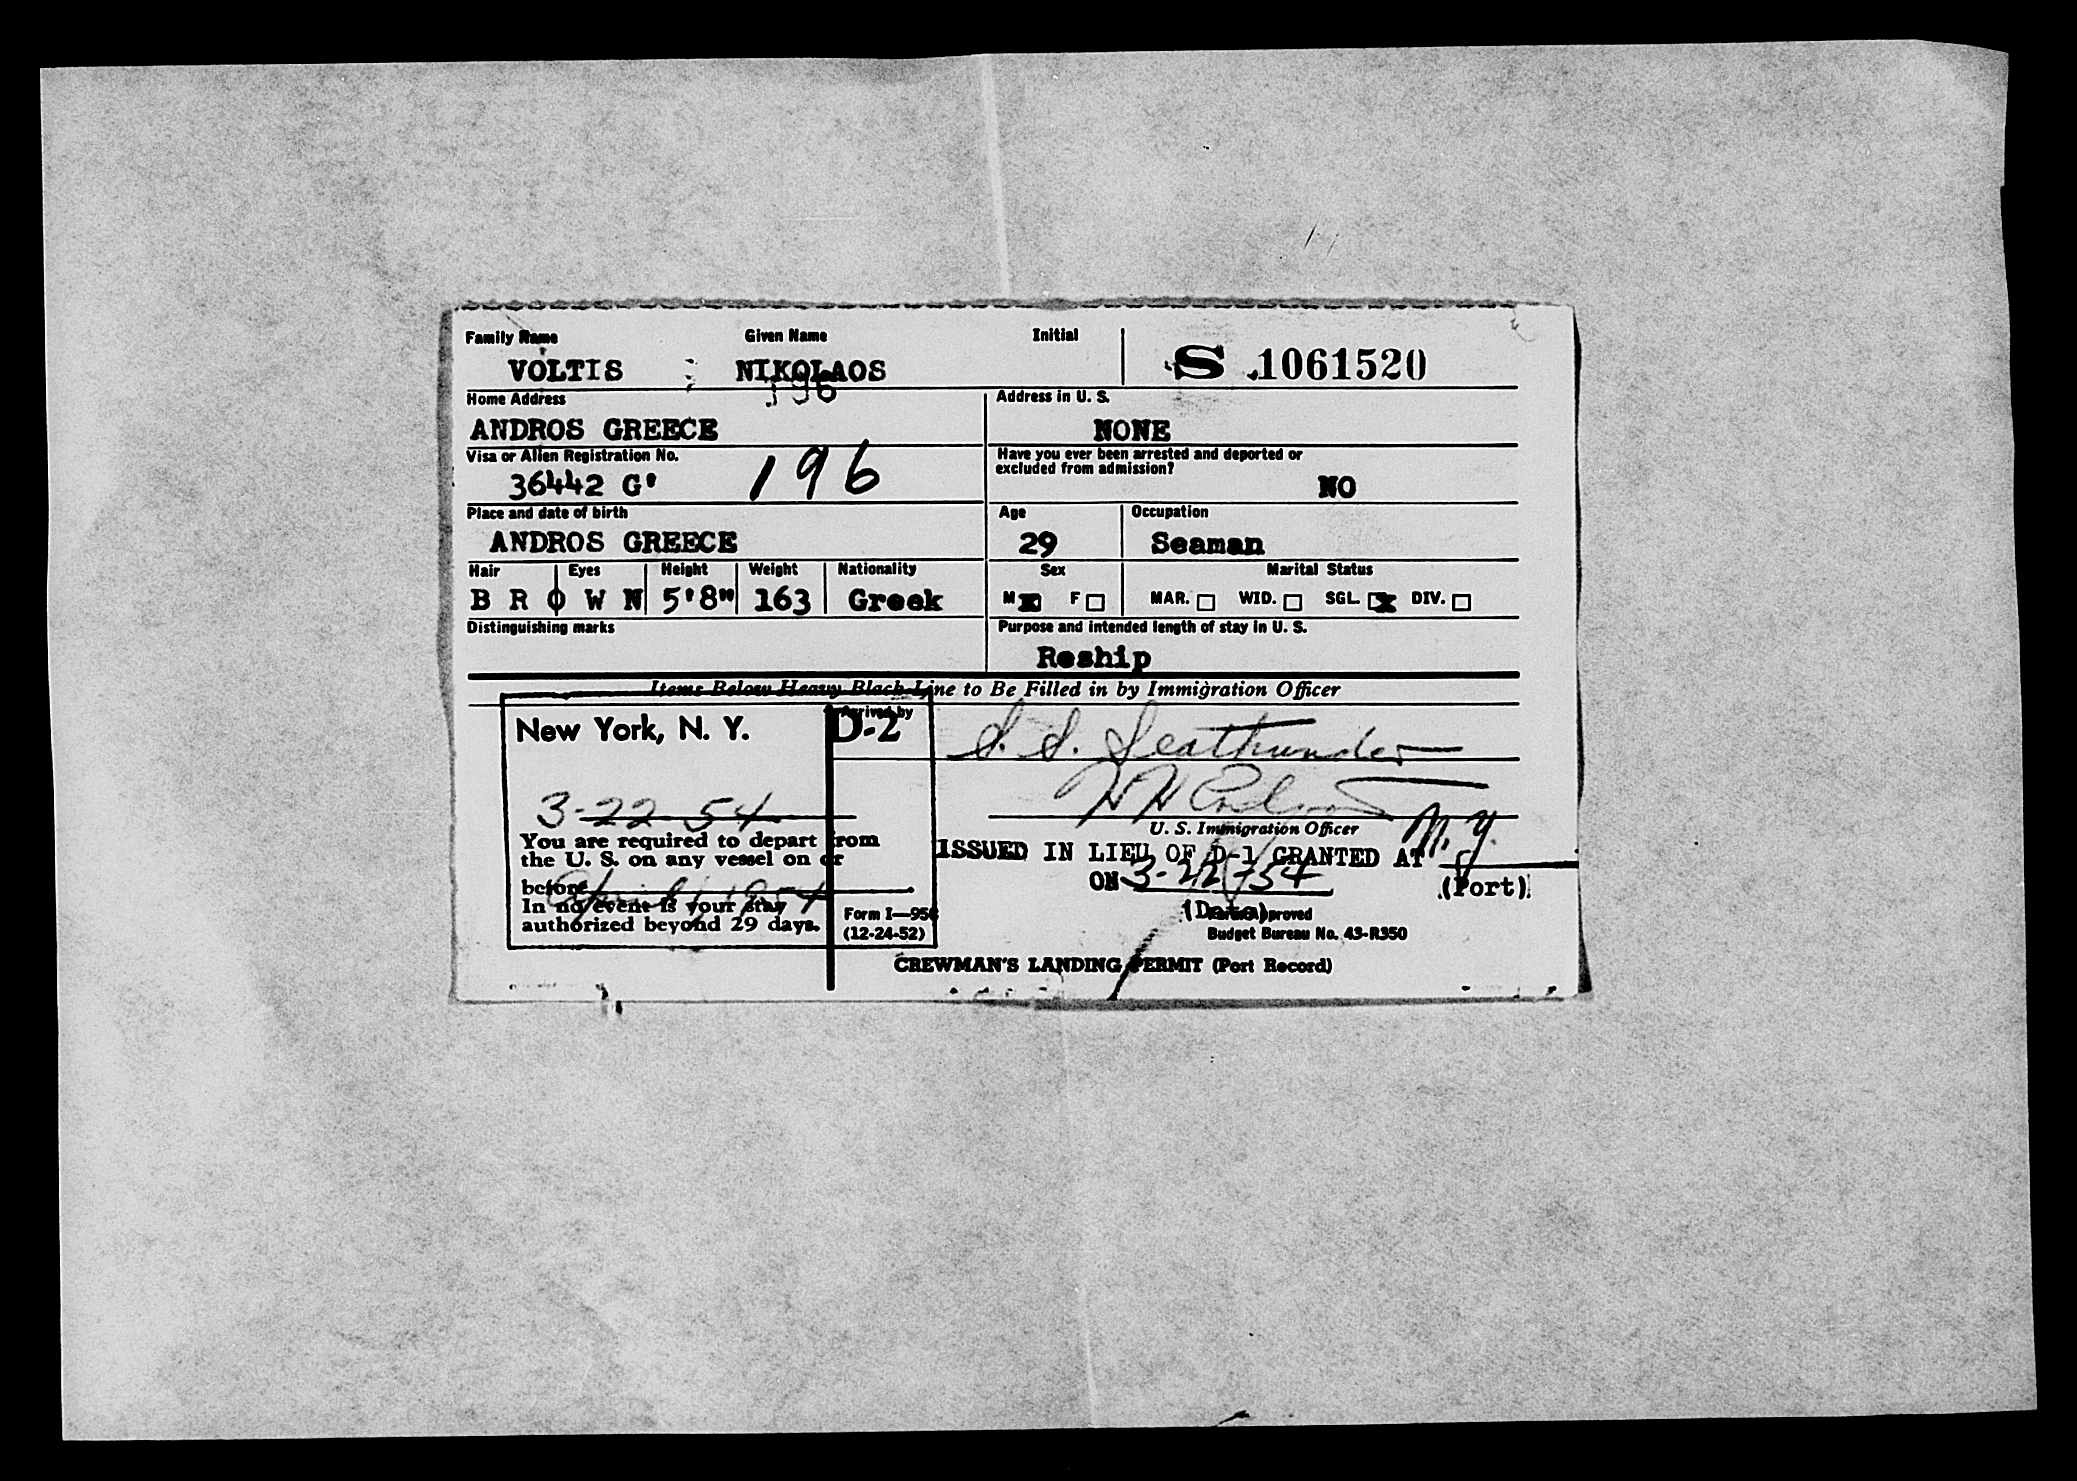 Family Name Given Name Initial
VOLTIS NIKOLAOS S 1061520
196
Home Address Address in U. S.
ANDROS GREECE NONE
Visa or Alien Registration No. Have you ever been arrested and deported or excluded from admission?
36442 G' 196 NO
Place and date of birth Age Occupation
ANDROS GREECE 29 Seaman
Hair Eyes Height Weight Nationality Sex Marital Status
B R O W N 5'8" 163 Greek M X F MAR. WID. SGL. X DIV.
Distinguishing marks Purpose and intended length of stay in U. S.
Reship
Items Below Heavy Black Line to Be Filled in by Immigration Officer
New York, N. Y. D-2 Arrived by
S. S. Seathunder
3-22-54
U. S. Immigration Officer
You are required to depart from
the U. S. on any vessel on or
before April 1, 1954
In no event is your stay
authorized beyond 29 days.
ISSUED IN LIEU OF D-1 GRANTED AT N.Y.
(Port)
ON 3-22-54
(Date)
Form I—95
(12-24-52)
approved
Budget Bureau No. 43-R350
CREWMAN'S LANDING PERMIT (Port Record)